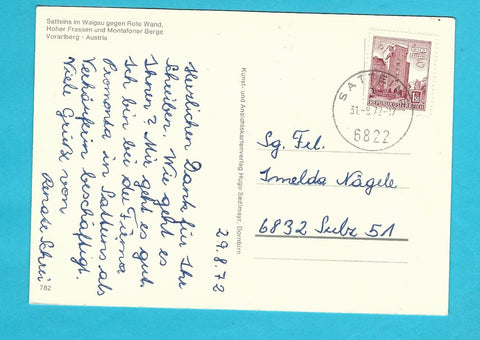 Satteins im Walgau gegen Rote Wand,
Hoher Frassen und Montafoner Berge
Vorarlberg - Austria
Herzlichen Dank für Ihr
Schreiben. Wie geht es
Ihnen? Mir geht es gut.
Ich bin bei der Firma
Promonta in Satteins als
Verkäuferin beschäftigt.
Viele Grüße von
Renate
29.8.72
782
Kunst- und Ansichtskartenverlag Hugo Sedlmayr, Dornbirn
REPUBLIK ÖSTERREICH
31.-8.72-17
6822
Sg. Frl.
Imelda Nägele
6832 Sulz 51